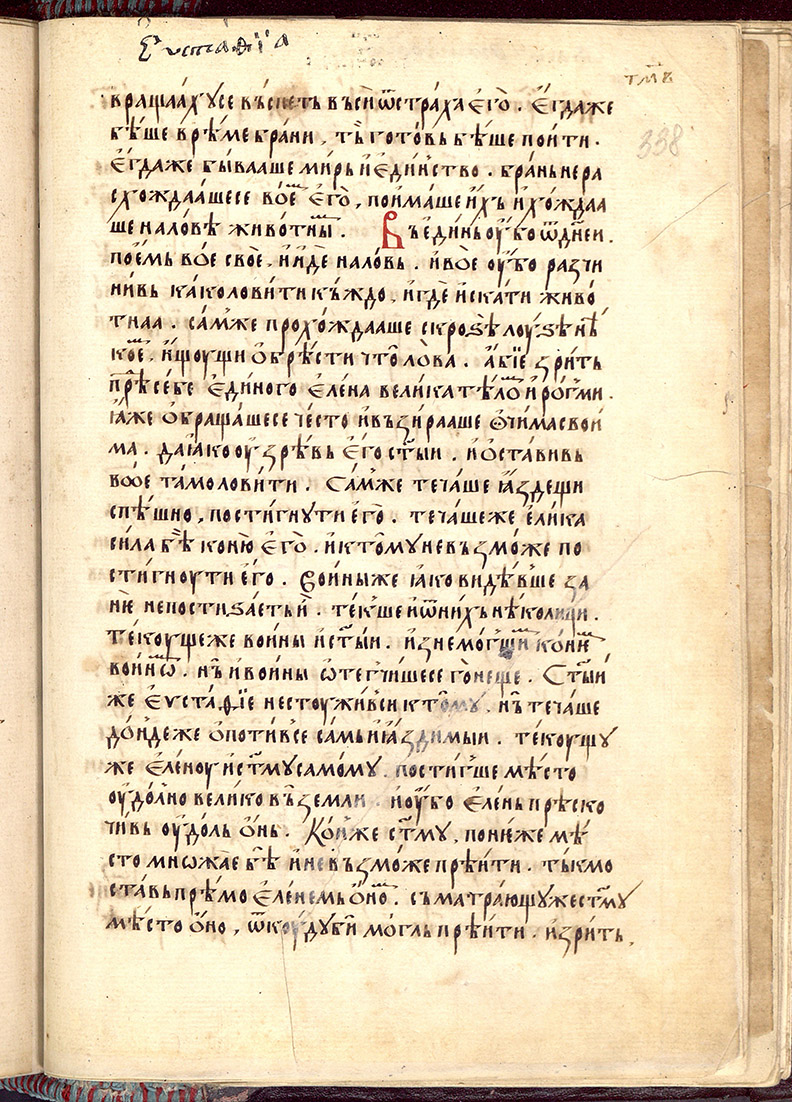 Еѵстаѳїа
тл҃и
338
вращаахꙋсе въспеть въсѝ ѿстраха єго̀ . Єгдаже
бѣ́ше врѣ́ме бра́ни , тъ̏ гото́вь бѣ́ше пои́ти .
Єгдаже быва́аше ми́рь и҆ є҆ди́нство . бра́нь нера
схожда́ашесе во́емь є҆го̀ , пои́маше и҆́хъ и҆ хо́ждаа
ше на ло́вѣ живо́тныⷨ . Въ є҆ди́нь ᲂу҆́бо ѿ дн҃еи .
пое́мь во́е своѐ . и҆ и҆́де на ло́вь . и҆ во́е ᲂу҆́бо разчи
ни́вь ка́ко лови́ти къ́ждо , и҆ гдѐ и҆ска́ти живо́
тнаа . са́мже прохо́ждааше скроѕѣ̀ лꙋ́ѕѣ нѣ̏
кое . и҆́щꙋщи ѻ҆брѣ́сти что̀ ло́ва . а҆́бїе зри́тъ
прѣⷣ се́бе є҆ди́ного є҆ле́на вели́ка тѣ́лоⷨ и҆ ро́гⷨми .
ꙗ҆́же ѻ҆браща́шесе че́сто и҆ възира́аше ѻ҆чи́ма свои́
ма . да ꙗ҆́ко ᲂу҆зрѣ́вь є҆го̀ ст҃ыи . и҆ ѻ҆ста́вивь
вое та́мо лови́ти . Са́мже теча́ше ꙗ҆́здещи
спѣ́шно , пости́гнꙋти є҆го̀ . теча́шеже є҆ли́ка
си́ла бѣ̏ коню̀ є҆го̀ . и҆ кто́мꙋ невъзмо́же по
сти́гнꙋти є҆го̀ . Во́иныже ꙗ҆́ко ви́дѣвше за
нїе непостиѕа́еть и҆̀ . те́кше и҆ ѿ ни́хъ нѣ́колици .
те́кꙋщеже во́ины и҆ ст҃ыи . и҆знемо́гшиⷨ ко́нѥⷨ
во́инѡⷨ . нъ̏ и҆ во́ины ѻ҆те́гчишесе го́неще . Ст҃ыи
же є҆ѵста́ѳїе нестꙋжи́вси кто́мꙋ . нъ̏ теча́ше
до́идеже ѻ҆поти́все са́мь и҆ ꙗ҆́здимыи . те́кꙋщꙋ
же є҆ле́нꙋ и҆ ст҃мꙋ само́мꙋ . пости́гше мѣ́сто
ᲂу҆до́лно вели́ко въ̏ земли . и҆ ᲂу҆́бо є҆ле́нь прѣско
чи́вь ᲂу҆до́ль ѻ҆́нь . Ко́нже ст҃мꙋ , поне́же мѣ́
сто мнѡжа́е бѣ̏ и҆ невъзмо́же прѣи́ти . тъ́кмо
ста́вь прѣ́мо є҆ле́немь ѻ҆́ноⷨ . съматра́ющꙋже ст҃мꙋ
мѣ́сто ѻ҆́но , ѿкꙋ́дꙋ бы̏ мо́гль прѣи́ти . и҆ зри́ть .